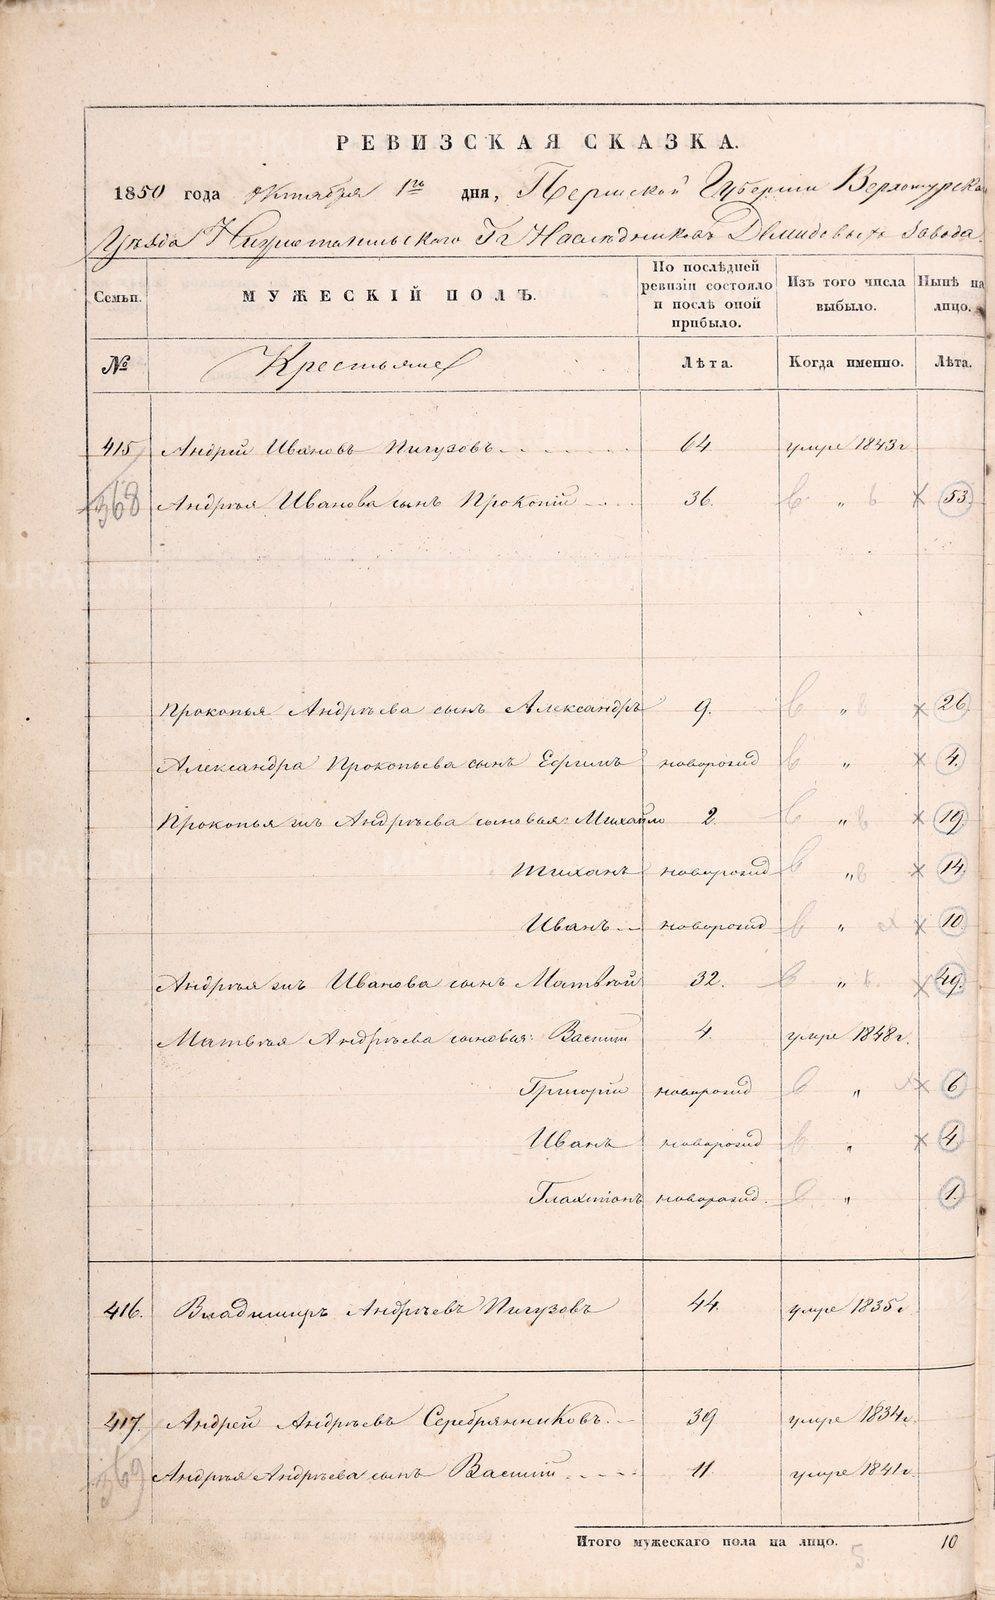 РЕВИЗСКАЯ СКАЗКА.
1850 года Октября 1го дня, Пермской Губернии Верхотурскаго
Уѣзда Нижнетагильского Гг Наслѣдниковъ Демидовыхъ завода
Семьи. МУЖЕСКІЙ ПОЛЪ. По послѣдней ревизіи состояло и послѣ оной прибыло. Изъ того числа выбыло. Нынѣ на лицо.
№ Крестьяне Лѣта. Когда именно. Лѣта.
415 Андрей Ивановъ Пигузовъ 64 умре 1843 г
368 Андрѣя Иванова сынъ Прокопій 36. „ 53
Прокопья Андрѣева сынъ Александръ 9. „ 26
Александра Прокопьева сынъ Ефимъ новорожд „ 4.
Прокопья жъ Андрѣева сыновья: Михайло 2. „ 19
Тиханъ новорожд „ 14
Иванъ новорожд „ 10
Андрѣя жъ Иванова сынъ Матвѣй 32. „ 49.
Матвѣя Андрѣева сыновья: Василій 4. умре 1848 г.
Григорій новорожд „ 6
Иванъ новорожд „ 4
Плахтіонъ новорожд. „ 1.
416. Владимиръ Андрѣевъ Пигузовъ 44. умре 1835 г
417. Андрей Андрѣевъ Серебрянниковъ 39 умре 1834 г.
369 Андрѣя Андрѣева сынъ Василій 11. умре 1841 г.
Итого мужескаго пола на лицо. 10
5